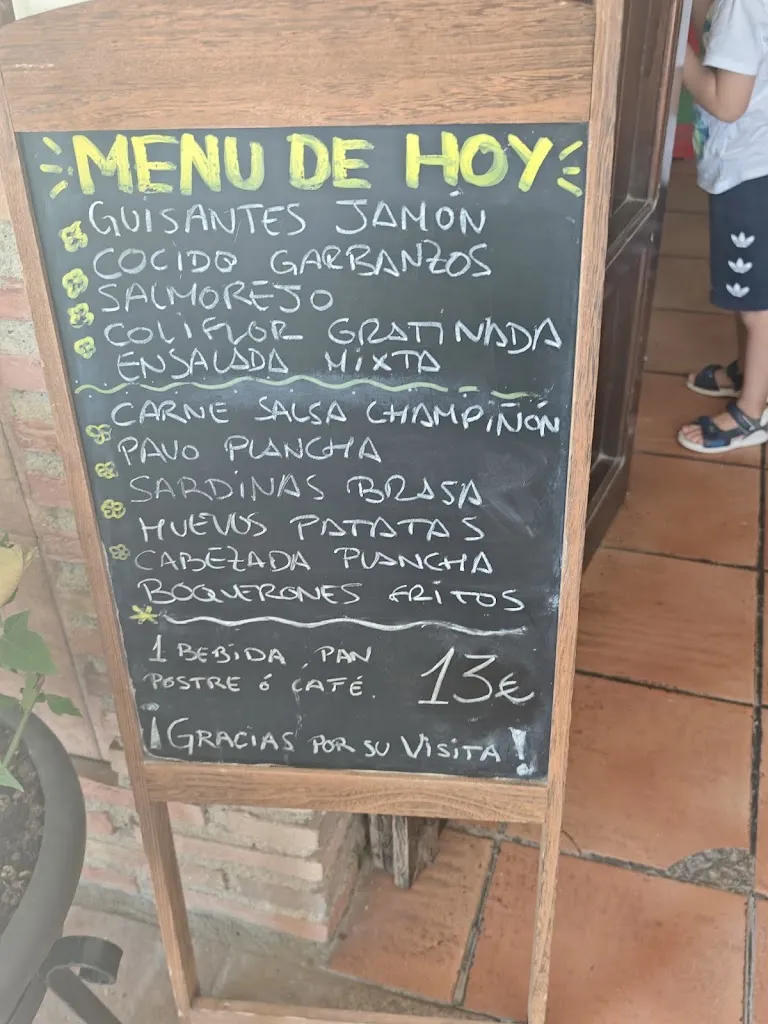 MENU DE HOY
GUISANTES JAMÓN
COCIDO GARBANZOS
SALMOREJO
COLIFLOR GRATINADA
ENSALADA MIXTA
CARNE SALSA CHAMPIÑÓN
PAVO PLANCHA
SARDINAS BRASA
HUEVOS PATATAS
CABEZADA PLANCHA
BOQUERONES FRITOS
1 BEBIDA, PAN
POSTRE ó CAFÉ.
13€
¡GRACIAS POR SU VISITA!